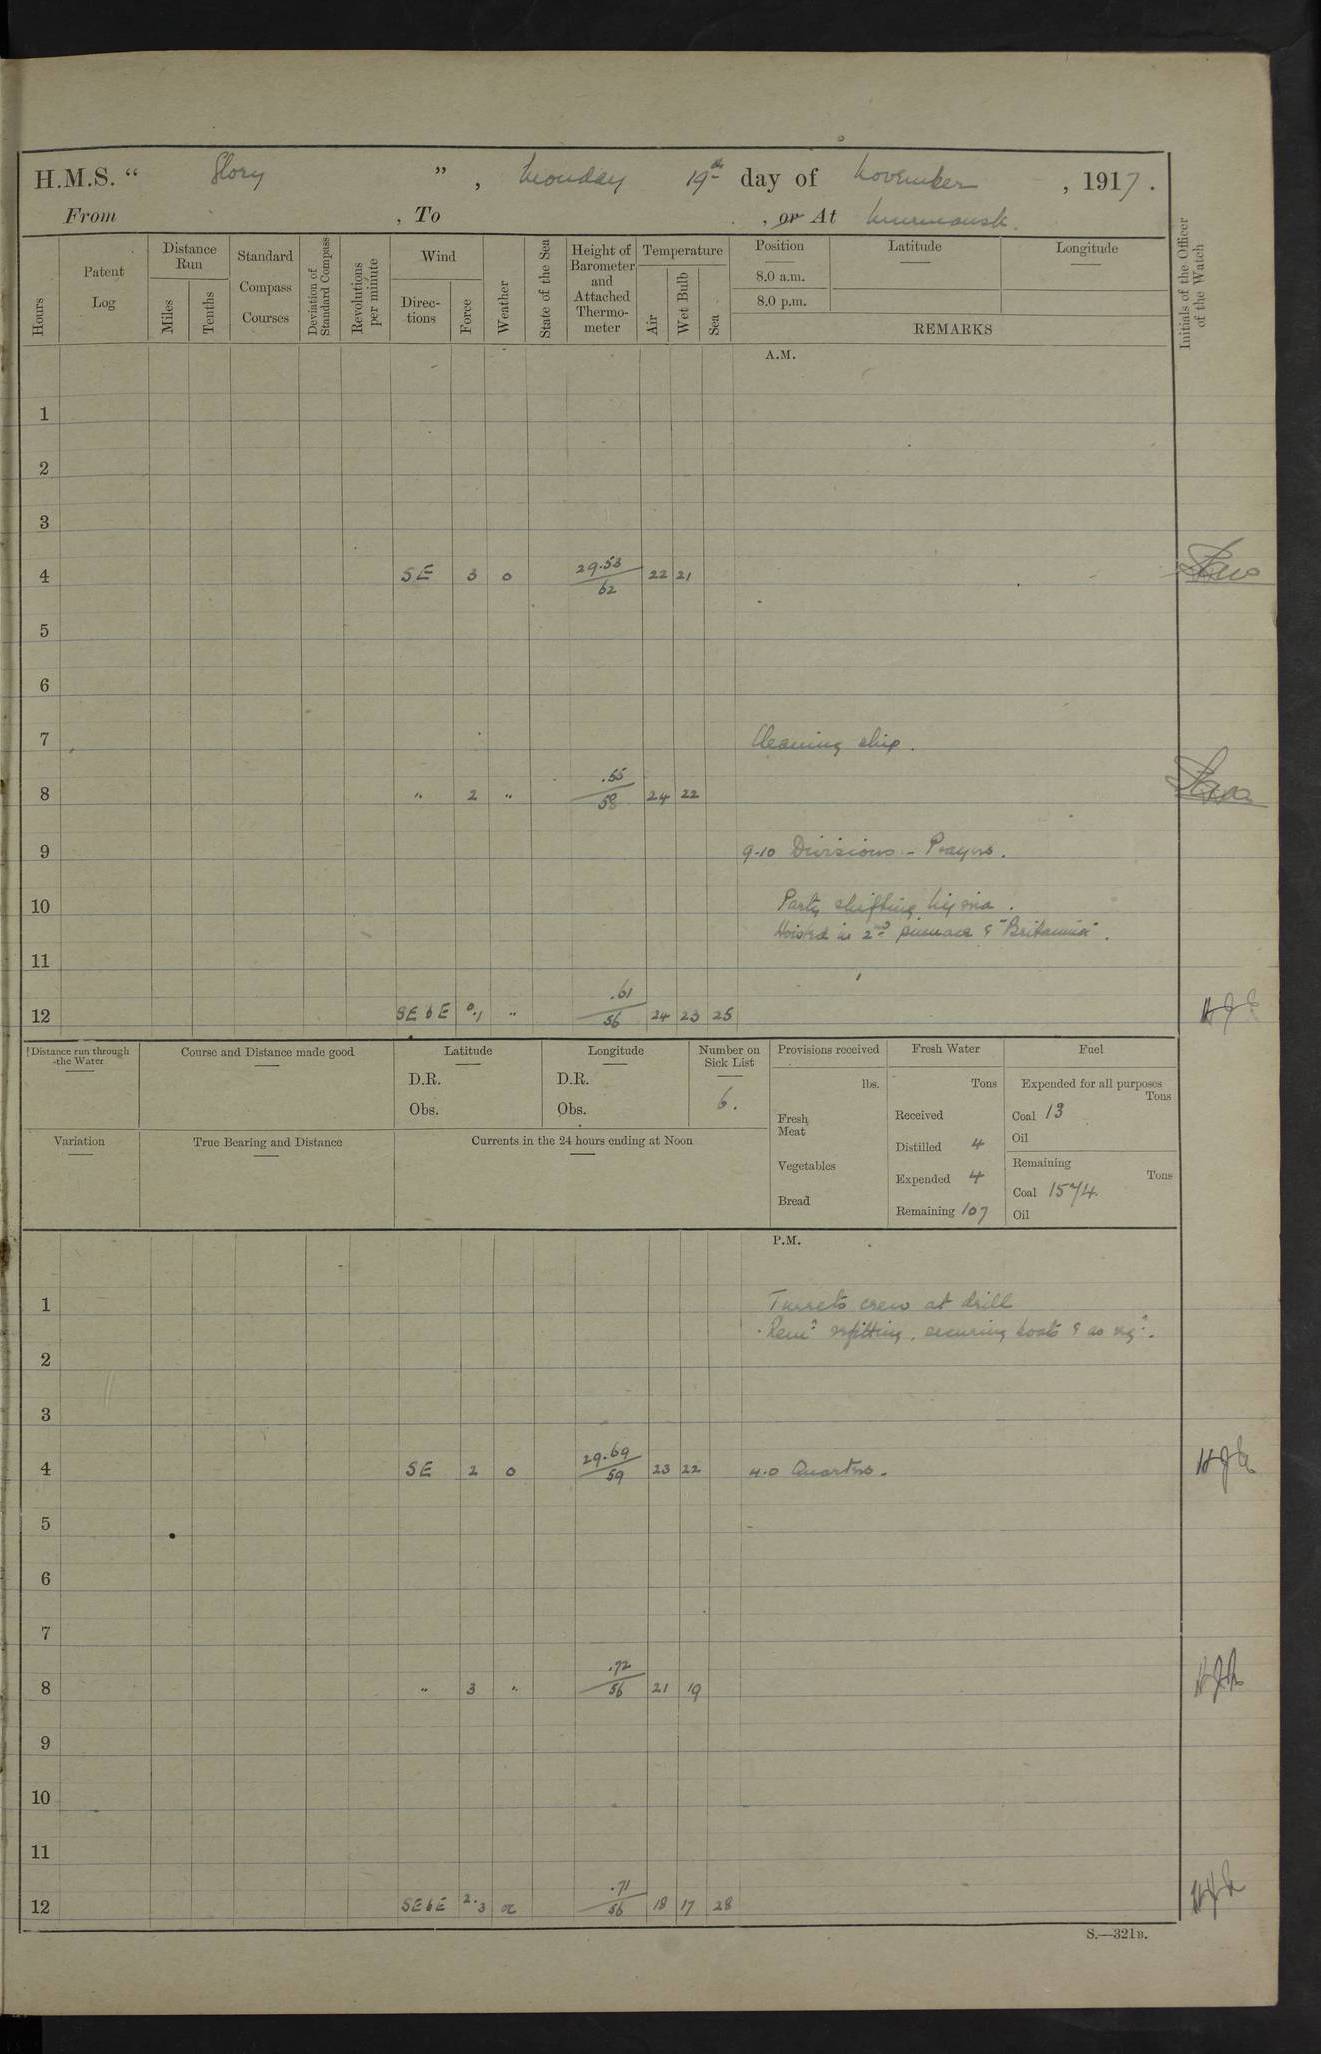 H.M.S. “ Glory ” , Monday 19th day of November , 1917 .
From , To , or At Murmansk
Hours
Patent Log
Distance Run
Miles
Tenths
Standard Compass Courses
Deviation of Standard Compass
Revolutions per minute
Wind
Direc-tions
Force
Weather
State of the Sea
Height of Barometer and Attached Thermo-meter
Temperature
Air
Wet Bulb
Sea
Position
Latitude
Longitude
8.0 a.m.
8.0 p.m.
REMARKS
Initials of the Officer of the Watch
A.M.
1
2
3
4 SE 3 o 29.53/62 22 21
5
6
7 Cleaning ship.
8 " 2 " .55/58 24 22
9 9-10 Divisions - Prayers.
10 Party shifting
Hoisted in 2nd pinnace & "Britannia".
11
12 SE b E 0.1 " .61/56 24 23 25
Distance run through the Water
Course and Distance made good
Latitude
D.R.
Obs.
Longitude
D.R.
Obs.
Number on Sick List
6.
Provisions received
lbs.
Fresh Meat
Vegetables
Bread
Fresh Water
Tons
Received
Distilled 4
Expended 4
Remaining 107
Fuel
Expended for all purposes
Tons
Coal 13
Oil
Remaining
Tons
Coal 1574
Oil
Variation
True Bearing and Distance
Currents in the 24 hours ending at Noon
P.M.
1 Turrets crew at drill
Remr refitting, securing boats & as reqd.
2
3
4 SE 2 o 29.69/59 23 22 4.0 Quarters.
5
6
7
8 " 3 " .72/56 21 19
9
10
11
12 SE b E 2.3 .71/56 18 17 28
S.—321B.